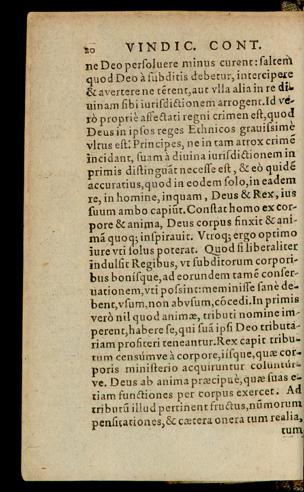 20 VINDIC. CONT.
ne Deo persoluere minus curent: saltem
quod Deo à subditis debetur, intercipere
& avertere ne tētent, aut vlla alia in re di-
uinam sibi iurisdictionem arrogent. Id ve-
rò propriè affectati regni crimen est, quod
Deus in ipsos reges Ethnicos grauissimè
vltus est. Principes, ne in tam atrox crimē
incidant, suam à diuina iurisdictionem in
primis distinguāt necesse est, & eò quidē
accuratius, quod in eodem solo, in eadem
re, in homine, inquam, Deus & Rex, ius
suum ambo capiūt. Constat homo ex cor-
pore & anima, Deus corpus finxit & ani-
mā quoq; inspirauit. Vtroq; ergo optimo
iure vti solus poterat. Quod si liberaliter
indulsit Regibus, vt subditorum corpori-
bus bonisque, ad eorundem tamē conser-
uationem, vti possint: meminisse sanè de-
bent, vsum, non abvsum, cōcedi. In primis
verò nil quod animæ, tributi nomine im-
perent, habere se, qui suā ipsi Deo tributa-
riam profiteri teneantur. Rex capit tribu-
tum censúmve à corpore, iisque, quæ cor-
poris ministerio acquiruntur coluntúr-
ve. Deus ab anima præcipuè, quæ suas e-
tiam functiones per corpus exercet. Ad
tributū illud pertinent fructus, nūmorum
pensitationes, & cætera onera tum realia,
tum